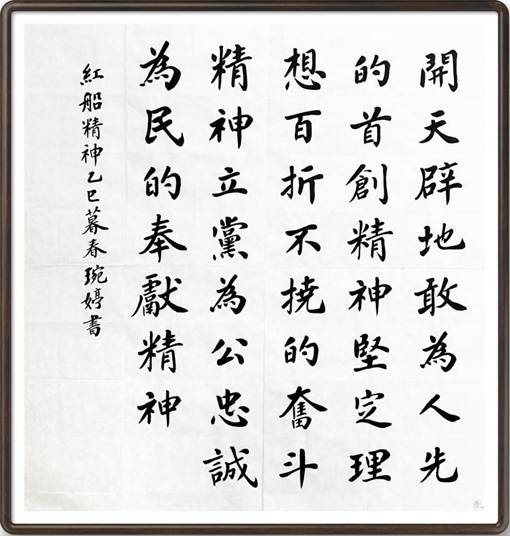 開天辟地敢為人先
的首創精神堅定理
想百折不撓的奮斗
精神立黨為公忠誠
為民的奉獻精神
紅船精神乙巳暮春琬婷書